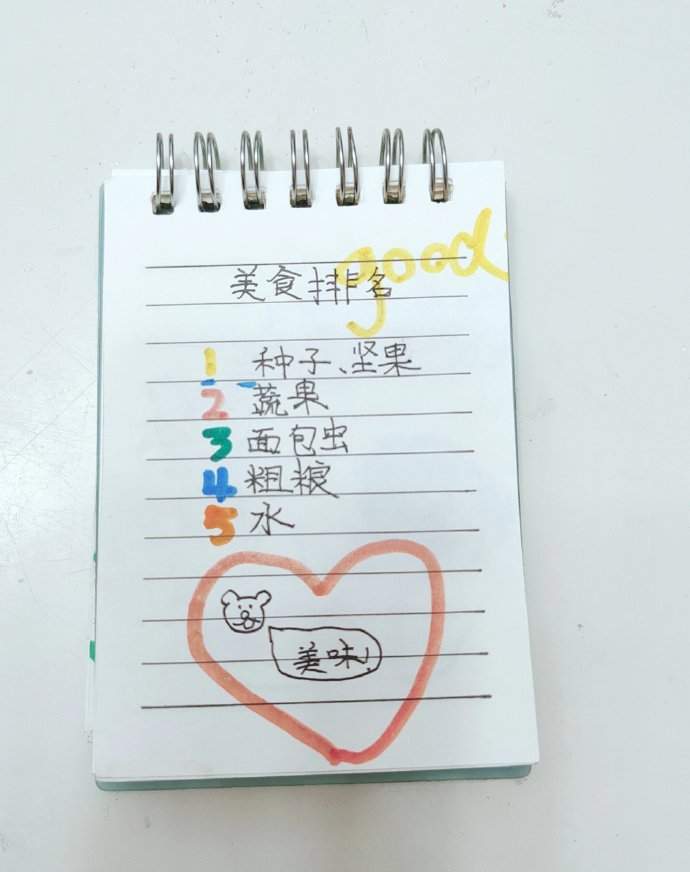 good
美食排名
1 种子、坚果
2 蔬果
3 面包虫
4 粗粮
5 水
美味